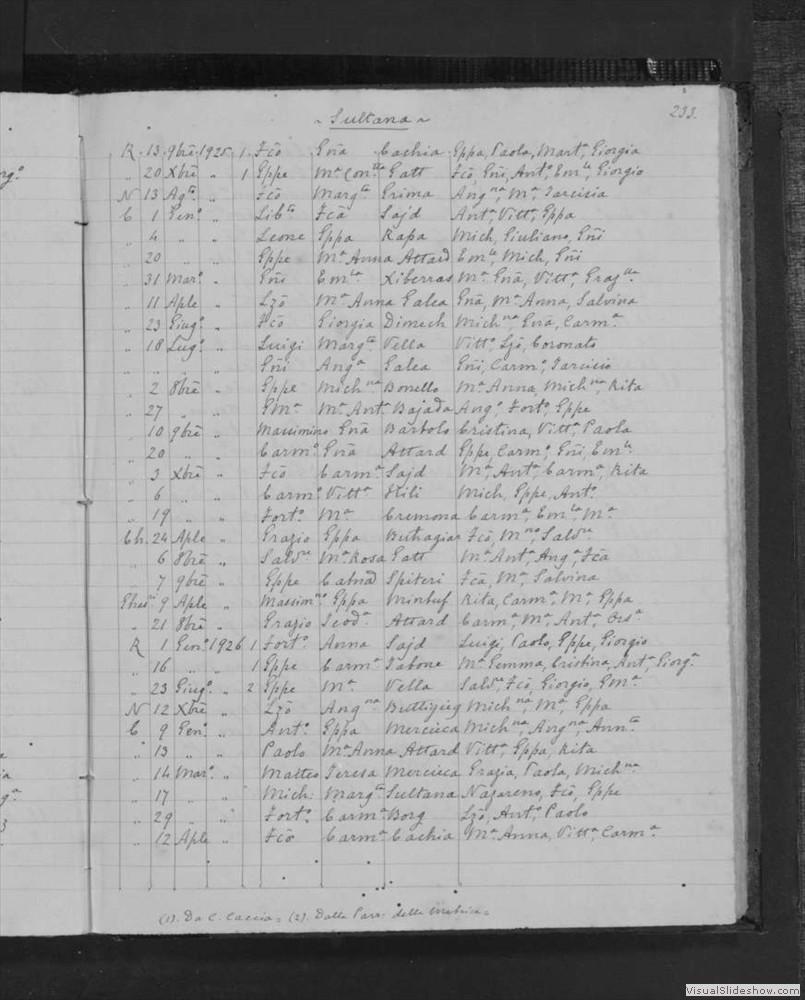 233.
~ Sultana ~
R. 13 9brē 1925 1. Fcō Gnā Cachia Eppa, Paola, Martª, Giorgia
„ 20 Xbrē „ 1 Eppe Mª Conᵗᵗᵃ Gatt Fcō, Gñi, Antº, Emˡᵉ, Giorgio
N 13 Agᵗᵒ „ Fcō Margᵗᵃ Grima Angⁿᵃ, Mª, Tarcisia
C 1 Genº „ Libᵗᵒ Fcā Sajd Antª, Vittª, Eppa
„ 4 „ „ Leone Eppa Rapa Mich, Giuliano, Gñi
„ 20 „ „ Eppe Mª Anna Attard Emˡᵉ, Mich, Gñi
„ 31 Marº „ Gñi Emˡᵃ Xiberras Mª Gnā, Vittª, Grazˡˡᵃ
„ 11 Aple „ Lzō Mª Anna Galea Gnā, Mª Anna, Salvina
„ 23 Giugº „ Fcō Giorgia Dimech Michⁿᵃ, Gnā, Carmª
„ 18 Lugº „ Luigi Margᵗᵃ Vella Vittº, Lzō, Coronato
„ „ „ „ Gñi Angª Galea Gñi, Carmº, Tarcisio
„ 2 8brē „ Eppe Michⁿᵃ Bonello Mª Anna, Michⁿᵃ, Rita
„ 27 „ „ Gmª Mª Antª Bajada Angº, Fortº, Eppe
„ 10 9brē „ Massimino Gnā Bartolo Cristina, Vittª, Paola
„ 20 „ „ Carmº Gnā Attard Eppe, Carmº, Gñi, Emˡᵉ
„ 3 Xbrē „ Fcō Carmª Sajd Mª, Antª, Carmª, Rita
„ 6 „ „ Carmº Vittª Stili Mich, Eppe, Antº
„ 19 „ „ Fortº Mª Cremona Carmª, Emˡᵃ, Mª
Ch. 24 Aple „ Grazio Eppa Buthagiar Fcō, Mⁿᵒ, Salvʳᵉ
„ 6 8brē „ Salvʳᵉ Mª Rosa Gatt Mª Antª, Angª, Fcā
„ 7 9brē „ Eppe Catnā Spiteri Fcā, Mª, Salvina
9 Aple „ Massimⁿᵒ Eppa Mintuf Rita, Carmª, Mª, Eppa
„ 21 8brē „ Grazio Teodª Attard Carmª, Mª, Antª, Orsª
R 1 Genº 1926 1 Fortº Anna Sajd Luigi, Paolo, Eppe, Giorgio
„ 16 „ „ 1 Eppe Carmª Tabone Mª Gemma, Cristina, Antª, Giorgª
„ 23 Giugº „ 2 Eppe Mª Vella Salvʳᵉ, Fcō, Giorgio, Gmª
N 12 Xbrē „ Lzō Angⁿᵃ Buttigieg Michⁿᵃ, Mª, Eppa
C 9 Genº „ Antº Eppa Mercieca Michⁿᵃ, Angⁿᵃ, Annᵗᵃ
„ 13 „ „ Paolo Mª Anna Attard Vittª, Eppa, Rita
„ 14 Marº „ Matteo Teresa Mercieca Grazia, Paola, Michⁿᵃ
„ 17 „ „ Mich: Margᵗᵃ Sultana Nazareno, Fcō, Eppe
„ 29 „ „ Fortº Carmª Borg Lzō, Antº, Paolo
„ 12 Aple „ Fcō Carmª Cachia Mª Anna, Vittª, Carmª
(1). Da C. Caccia = (2). Dalla Parr. della Matrice =
VisualSlideshow.com